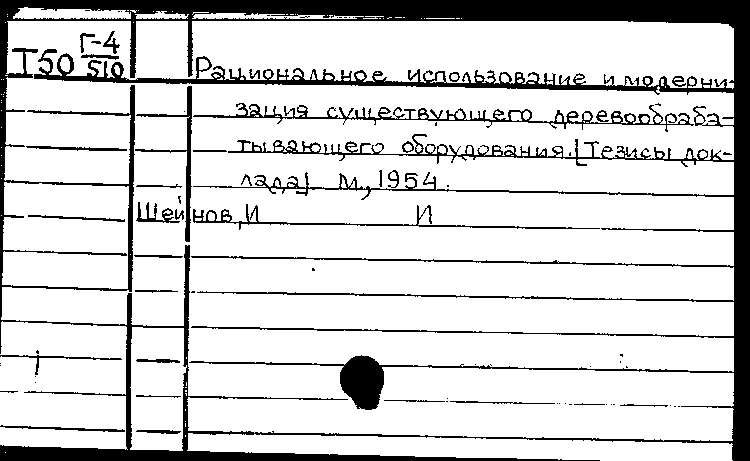 Т50 Г-4/510
Рациональное использование и модерни-
зация существующего деревообраба-
тывающего оборудования. [Тезисы док-
лада] М., 1954.
Шейнов, И И